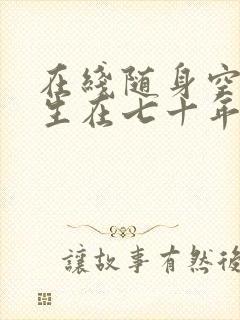 在綫随身空
生在七十年
讓故事有然後